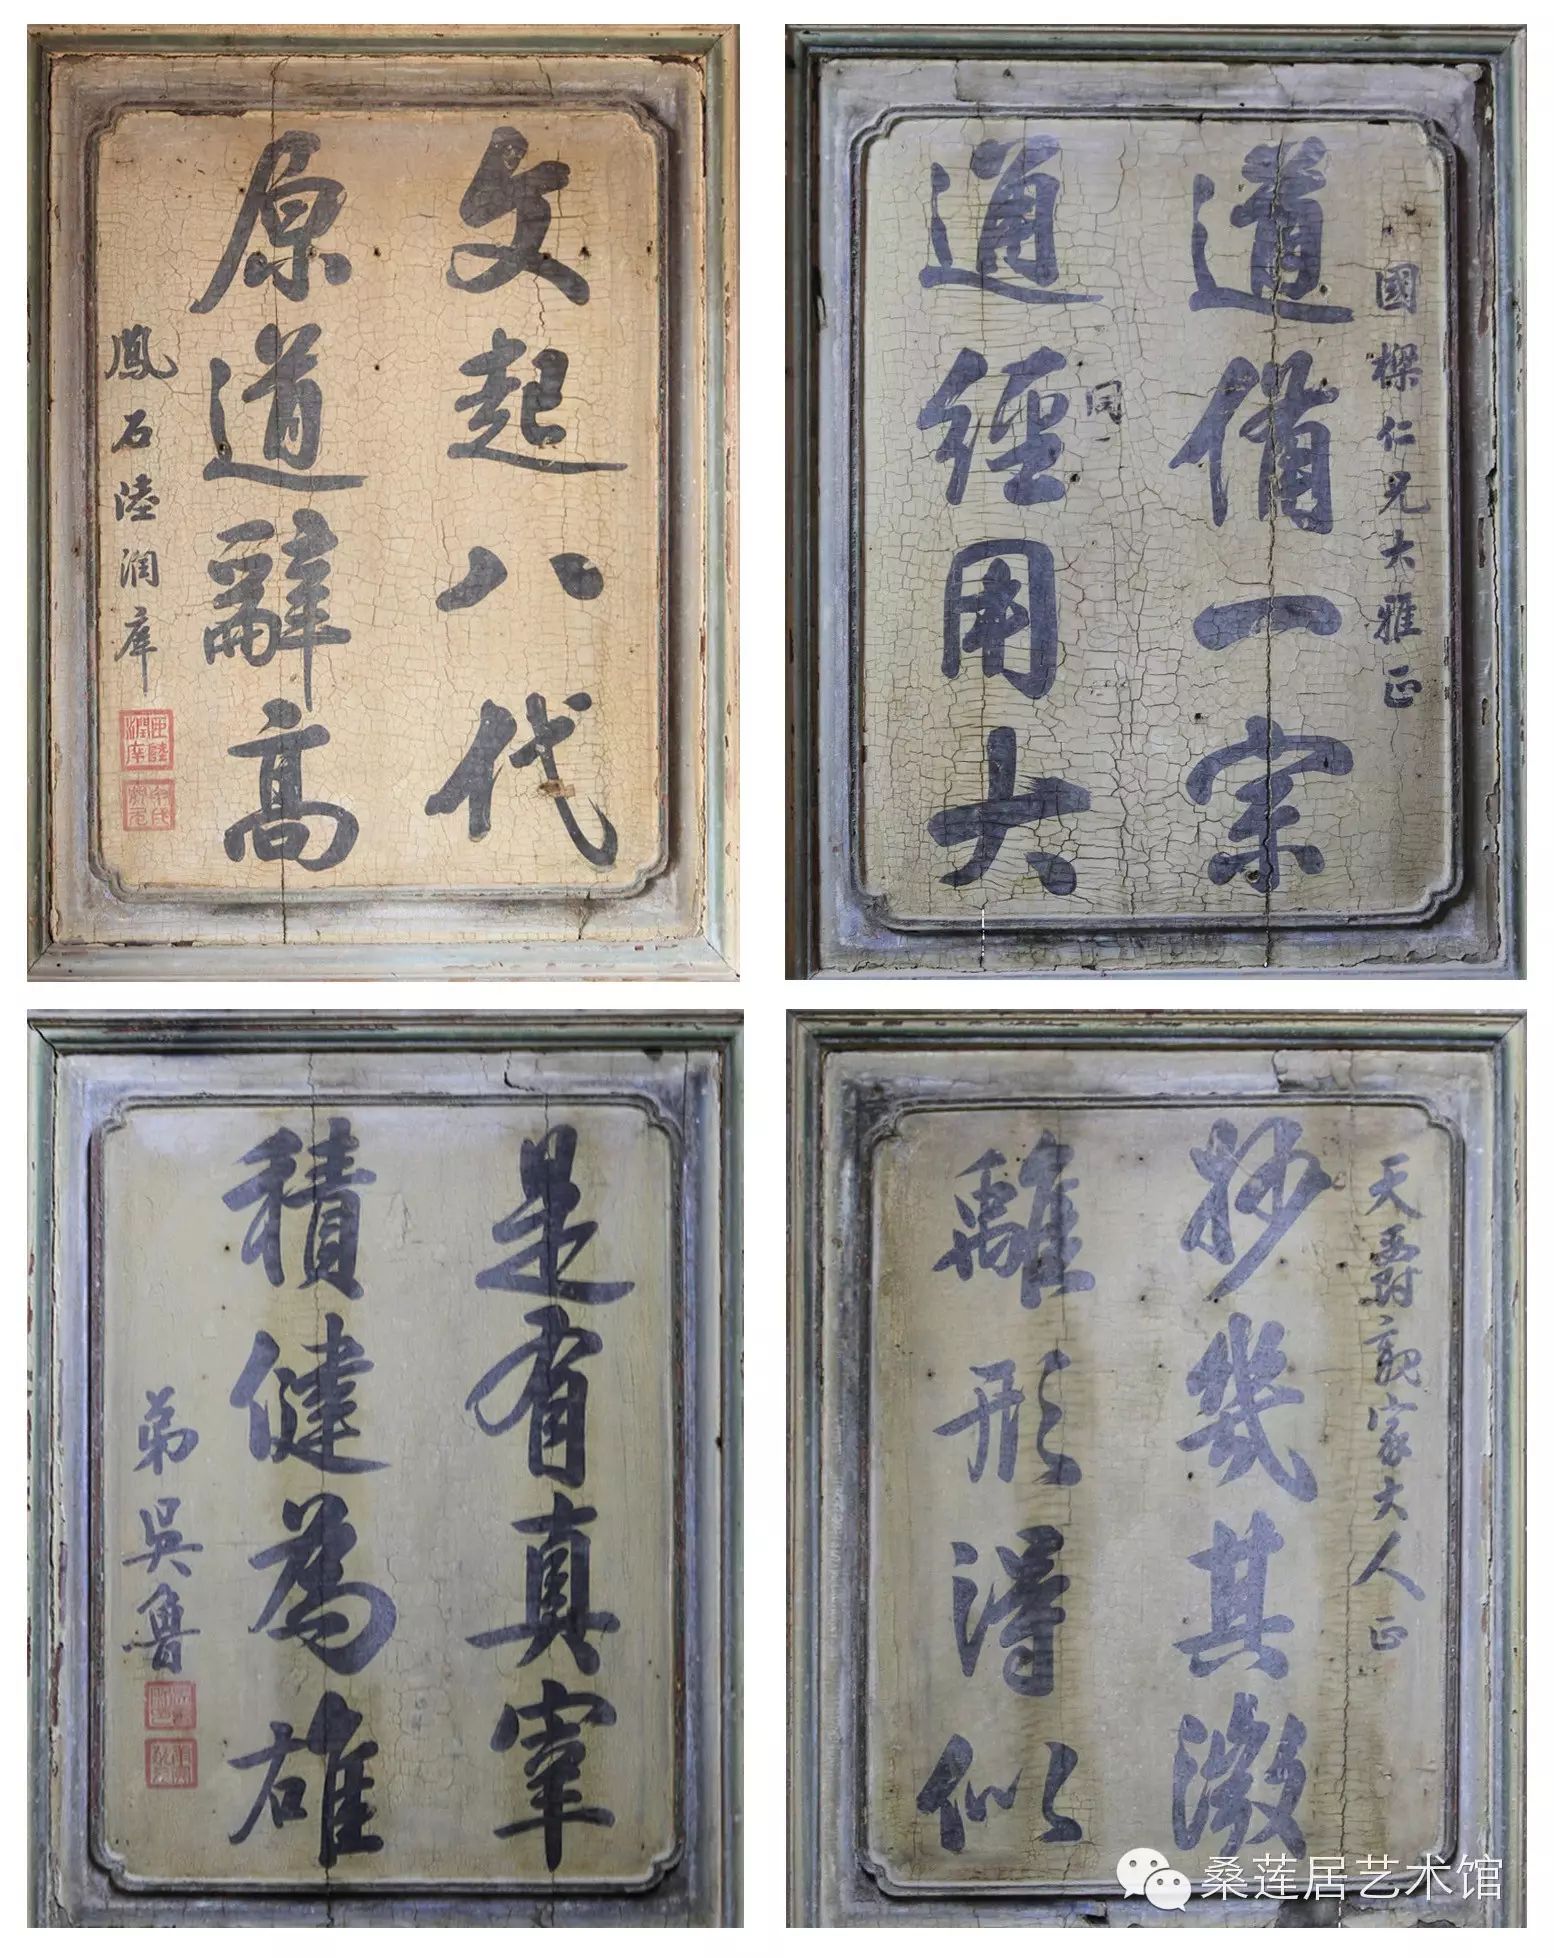 國樑仁兄大雅正
道備一宗
同
通經用大
文起八代
原道辭高
鳳石陸潤庠
臣陸潤庠
天爵親家大人正
妙幾其微
離形得似
是有真宰
積健為雄
弟吳魯
桑莲居艺术馆